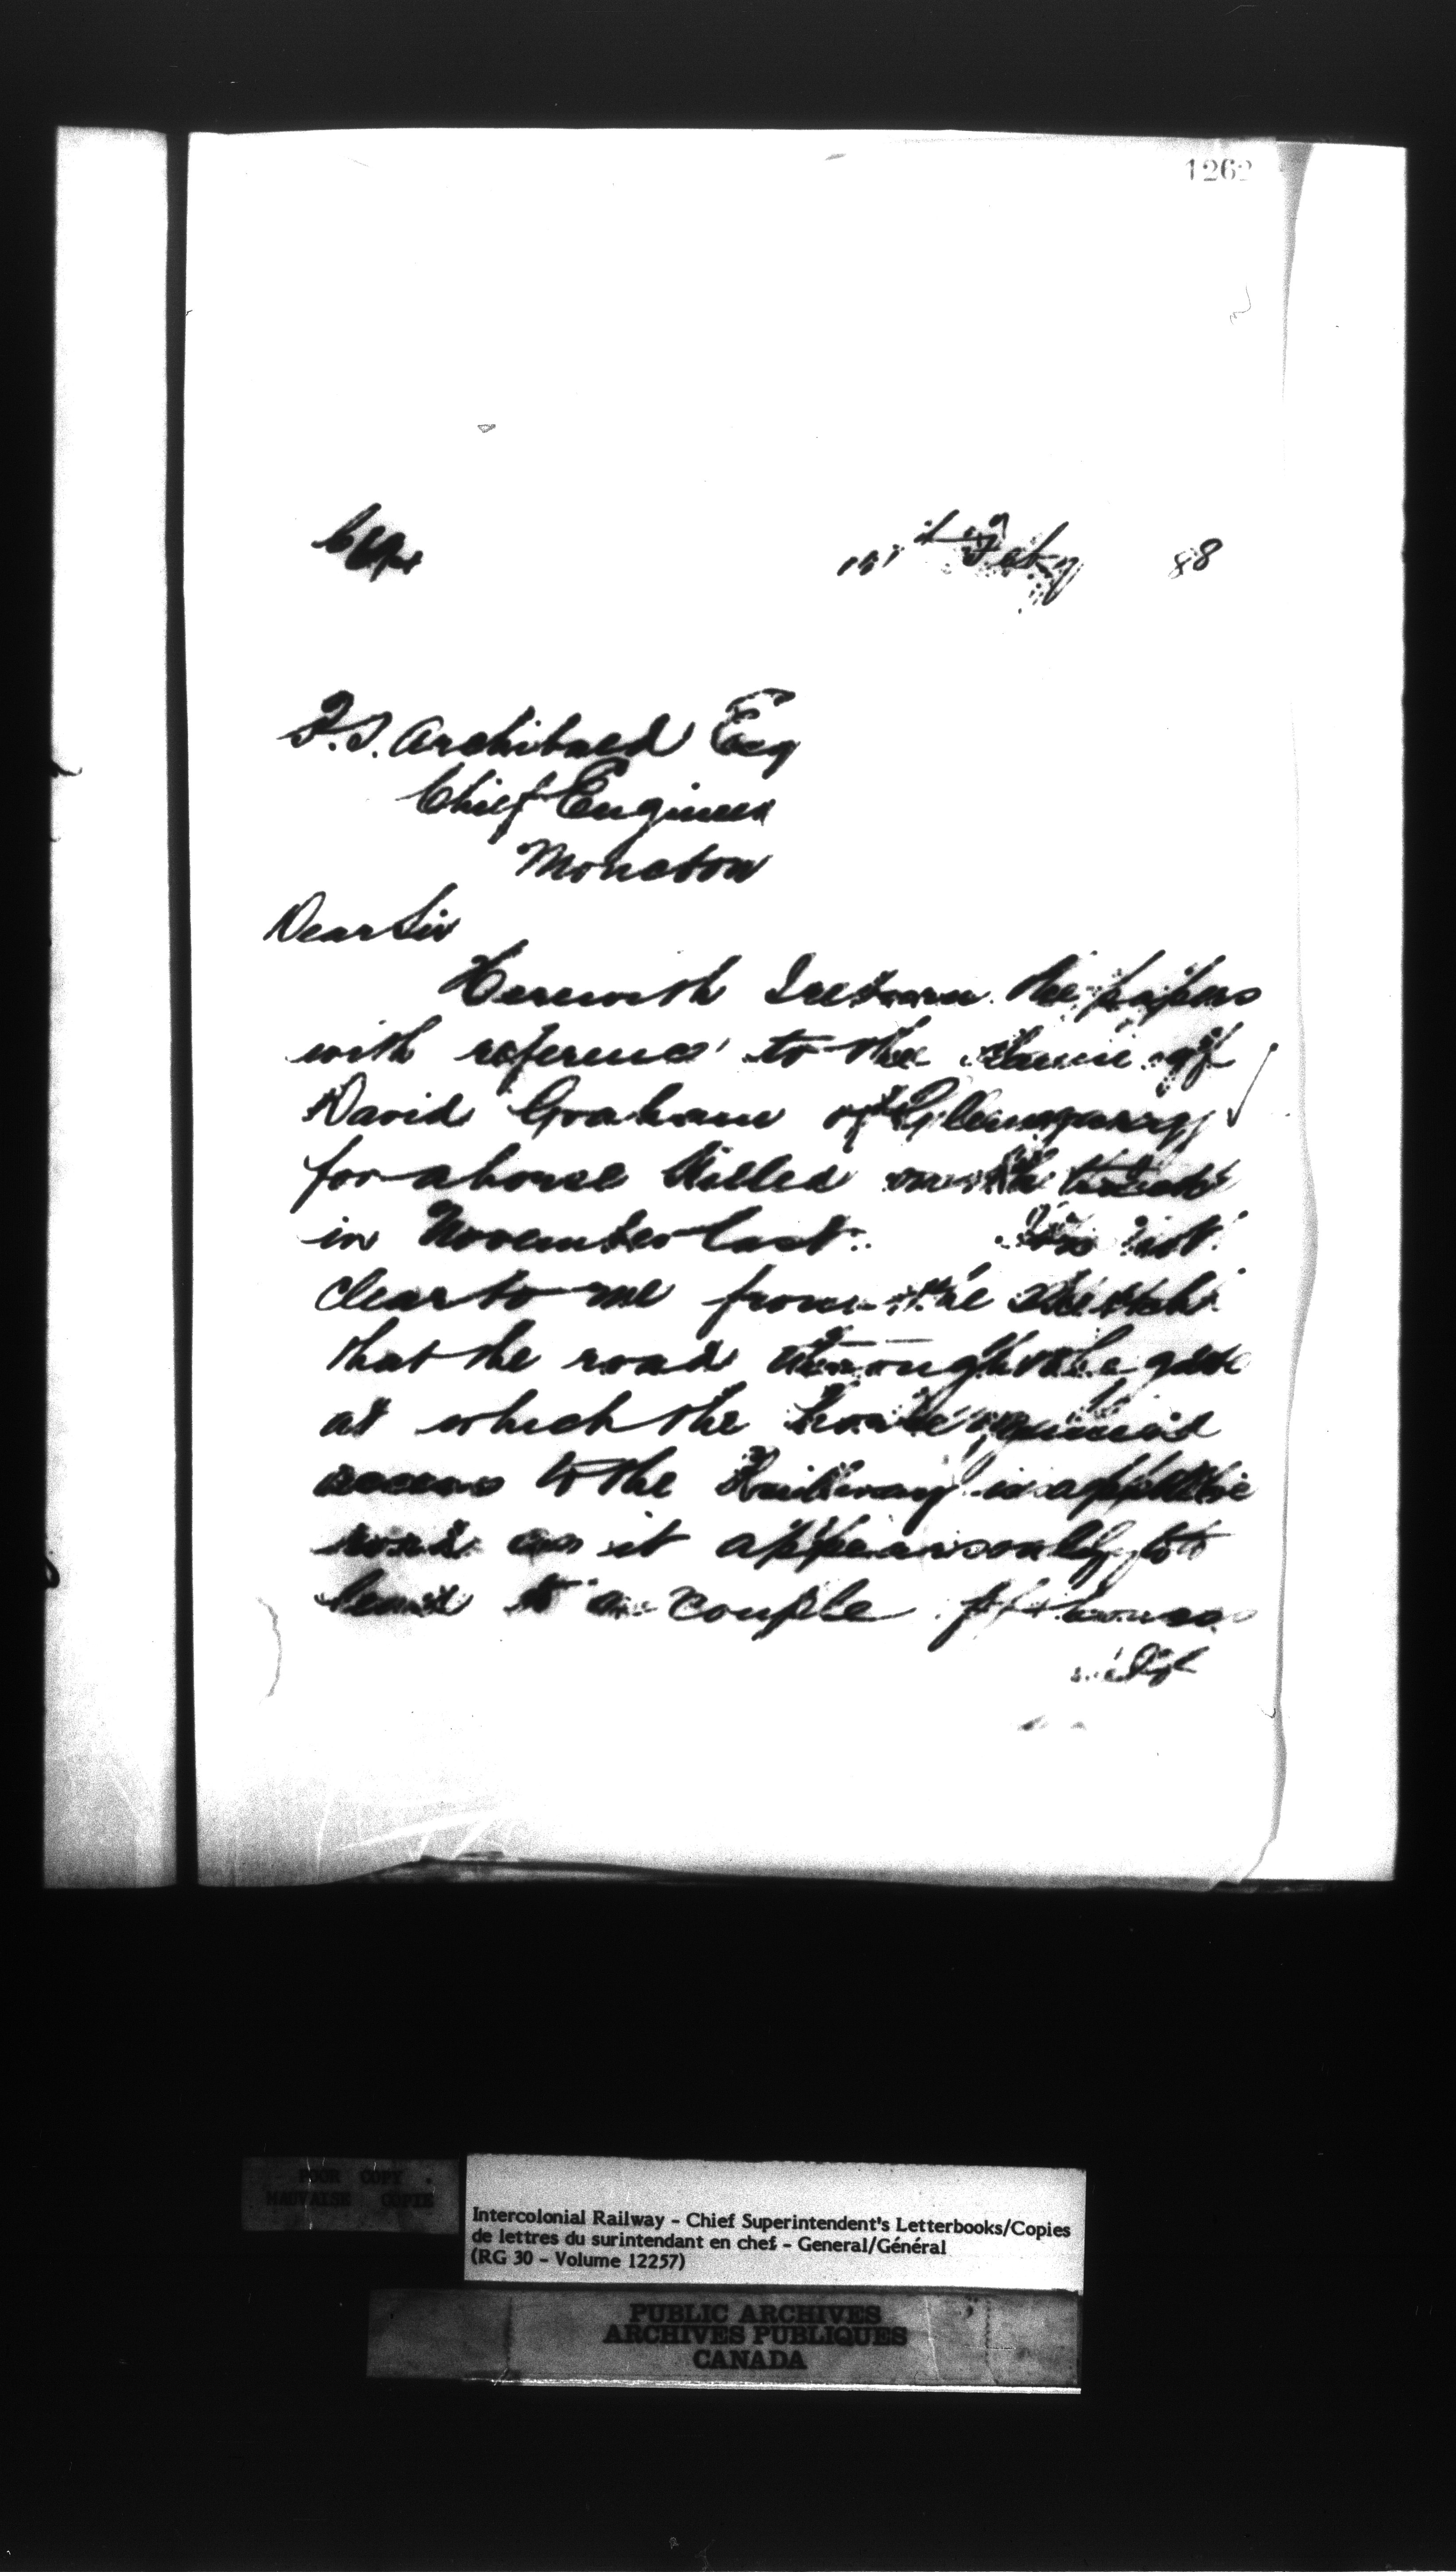 1262
Feby 88
P.S. Archibald Esq
Chief Engineer
Moncton
Dear Sir
Herewith I return the papers
with reference to the claim of
David Graham of Glengarry
for a horse killed on the track
in November last. It is not
clear to me from the sketch
that the road through the gate
at which the horse gained
access to the Railway is a public
road as it appears only to
lead to a couple of houses
POOR COPY
MAUVAISE COPIE
Intercolonial Railway - Chief Superintendent's Letterbooks/Copies
de lettres du surintendant en chef - General/Général
(RG 30 - Volume 12257)
PUBLIC ARCHIVES
ARCHIVES PUBLIQUES
CANADA